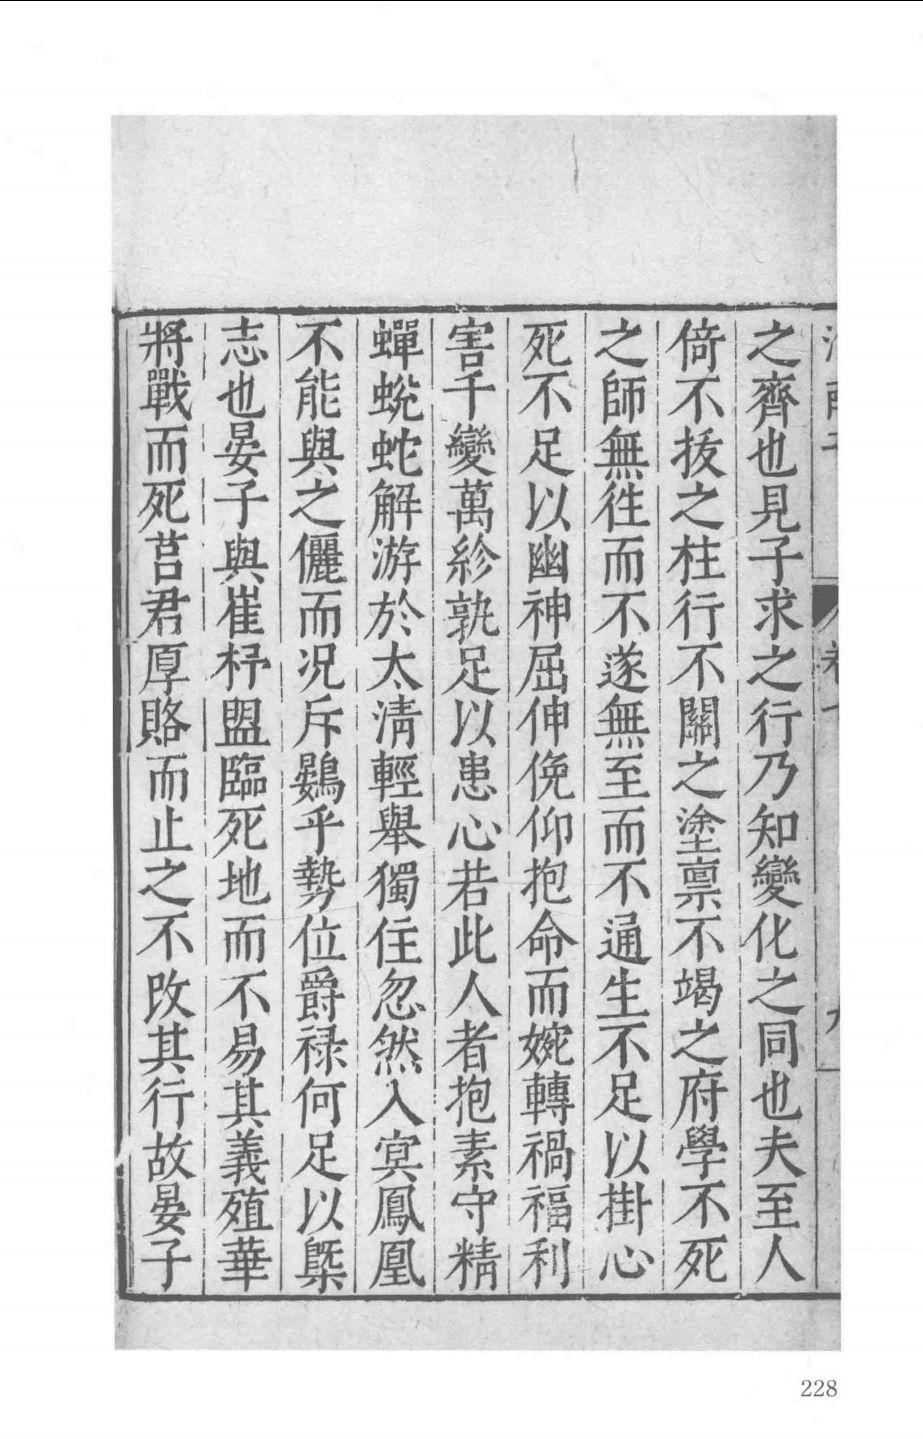 之齊也見子求之行乃知變化之同也夫至人
倚不拔之柱行不關之塗禀不竭之府學不死
之師無徃而不遂無至而不通生不足以掛心
死不足以幽神屈伸俛仰抱命而婉轉禍福利
害千變萬紾孰足以患心若此人者抱素守精
蟬蛻蛇解游於太清輕舉獨住忽然入㝠鳳凰
不能與之儷而况斥鷃乎勢位爵禄何足以槩
志也晏子與崔杼盟臨死地而不易其義殖華
將戰而死莒君厚賂而止之不改其行故晏子
228